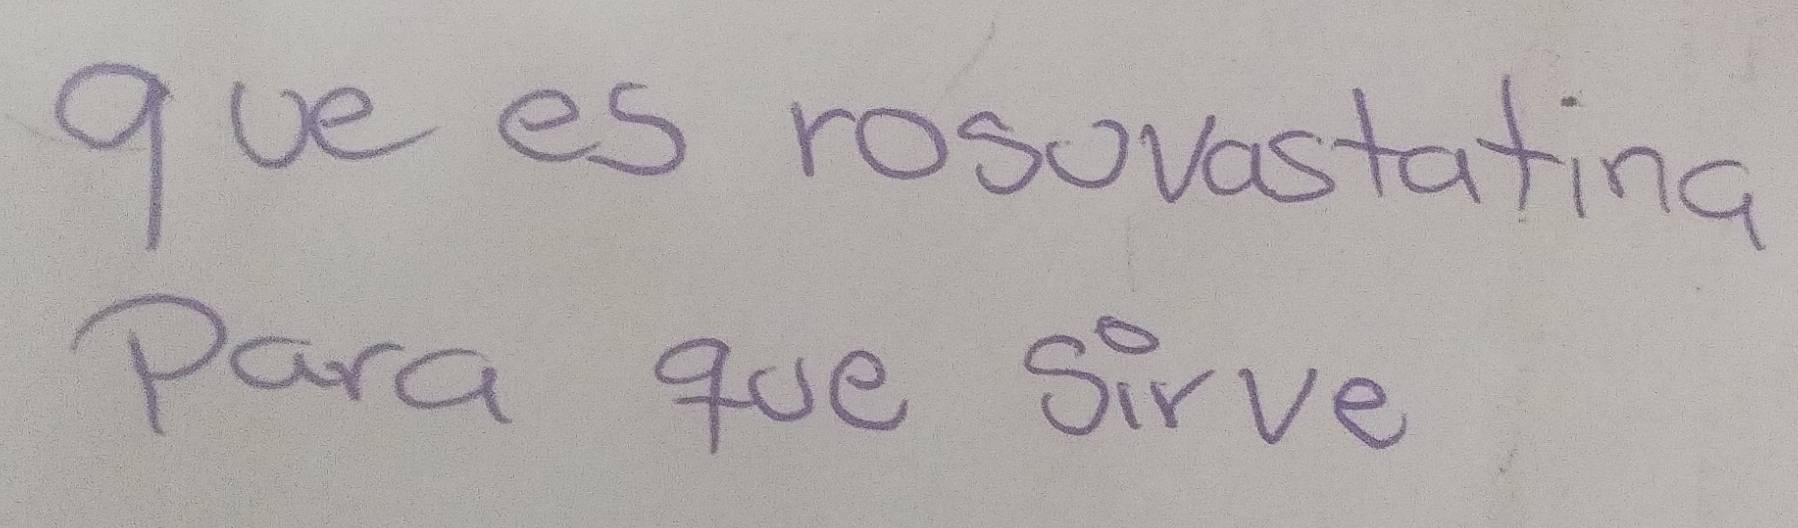 que es rosuvastatina
Para que sirve